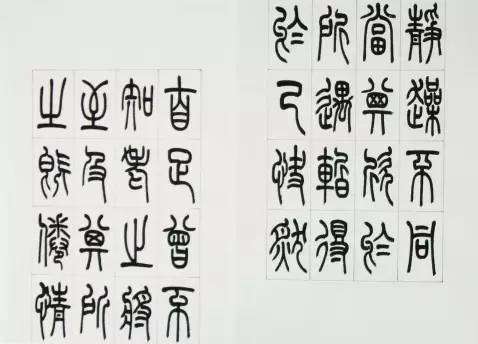 靜躁不同
當其欣於
所遇暫得
於己快然
自足曾不
知老之將
至及其所
之既倦情